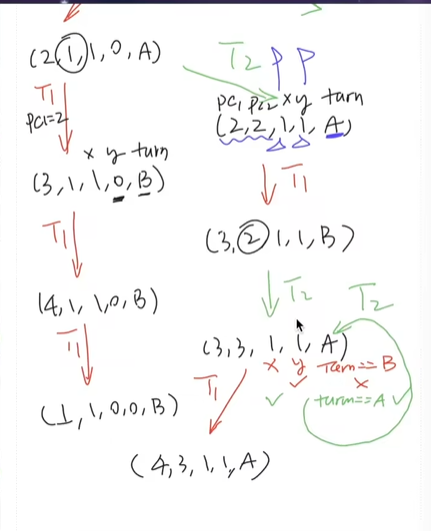 (2, 1, 1, 0, A)
T1
PC1=2
x y turn
(3, 1, 1, 0, B)
T1
(4, 1, 1, 0, B)
T1
(1, 1, 0, 0, B)
T2 P P
PC1 PC2 x y turn
(2, 2, 1, 1, A)
T1
(3, 2, 1, 1, B)
T2
T2
(3, 3, 1, 1, A)
x y Turn==B
✓ ×
✓ (turn==A ✓
T1
(4, 3, 1, 1, A)